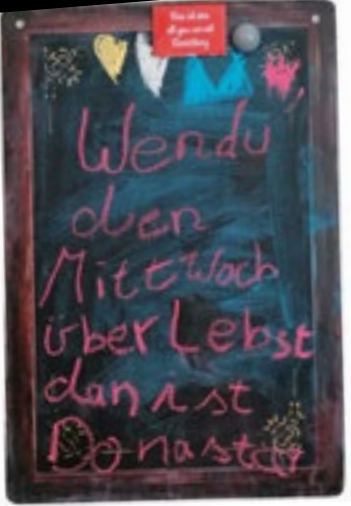 Wendu
den
Mittwoch
überLebst
dan ist
Donastag